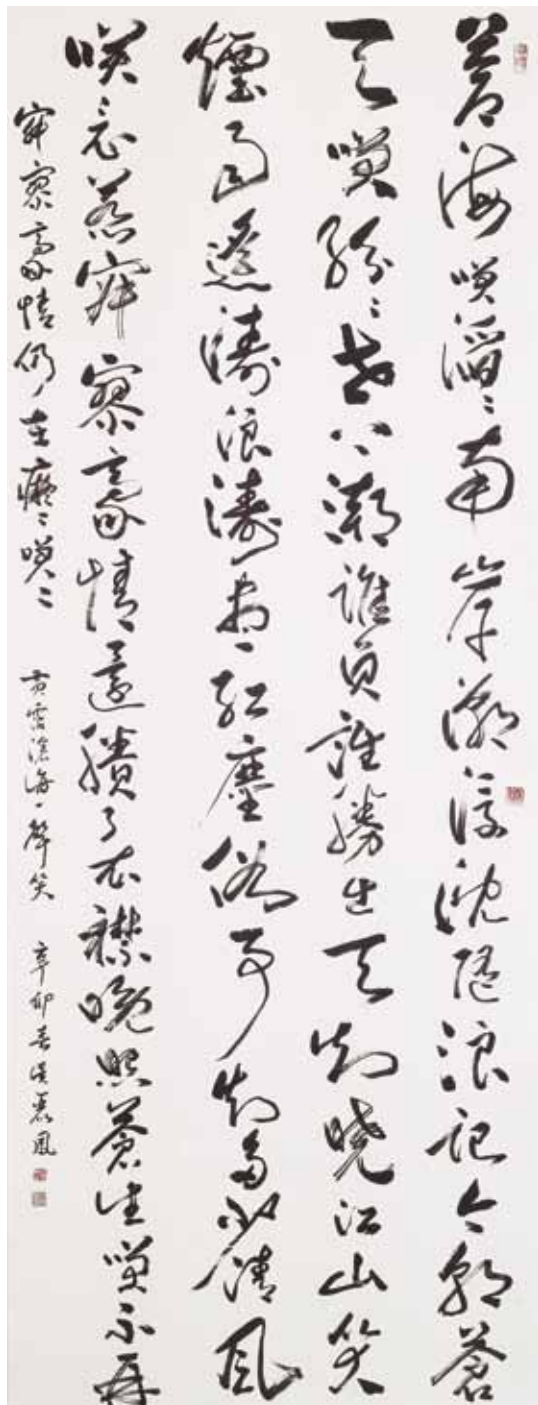 蒼海咲滔〻兩岸潮浮沈隨浪記今朝蒼
天咲紛〻世上潮誰負誰勝出天知曉江山笑
煙雨遙濤浪濤盡紅塵俗事知多少清風
咲竟惹寂寥豪情還賸了衣襟晚照蒼生咲不再
寂寥豪情仍在癡〻咲〻 黃霑滄海一聲笑 辛卯春